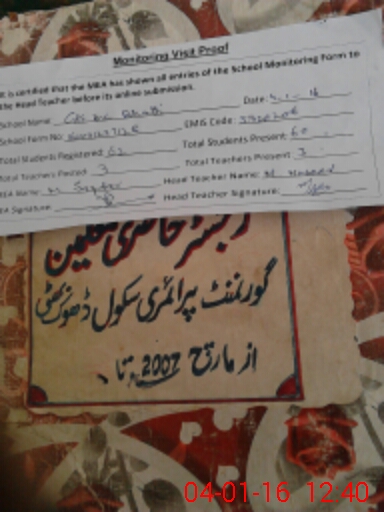 Monitoring Visit Proof
It is certified that the MEA has shown all entries of the School Monitoring Form to
the Head Teacher before its online submission.
School Name: GPS Dhok Bhatti Date: 4-1-16
School Form No: EMIS Code:
Total Students Registered: 62 Total Students Present: 60
Total Teachers Posted: 3 Total Teachers Present: 3
MEA Name: M Head Teacher Name: M
MEA Signature Head Teacher Signature:
رجسٹر حاضری معلمین
گورنمنٹ پرائمری سکول ڈھوک بھٹی
از مارچ 2007ء تا
04-01-16 12:40